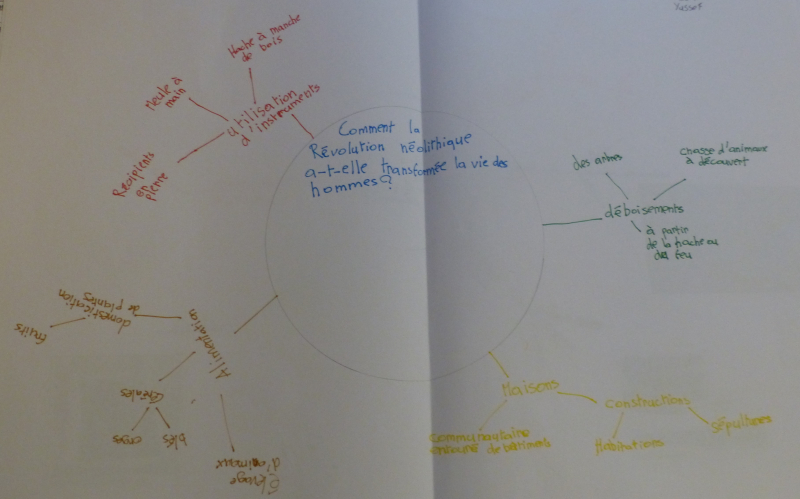 Hache à manche
de bois
Meule à
main
utilisation
d'instruments
Récipients
en pierre
Comment la
Révolution néolithique
a-t-elle transformée la vie des
hommes?
des arbres
chasse d'animaux
à découvert
déboisements
à partir
de la hache ou
du feu
Alimentation
domestication
de plantes
fruits
Céréales
blés
orges
Élevage
d'animaux
Maisons
communautaire
entouré de bâtiments
constructions
Habitations
sépultures